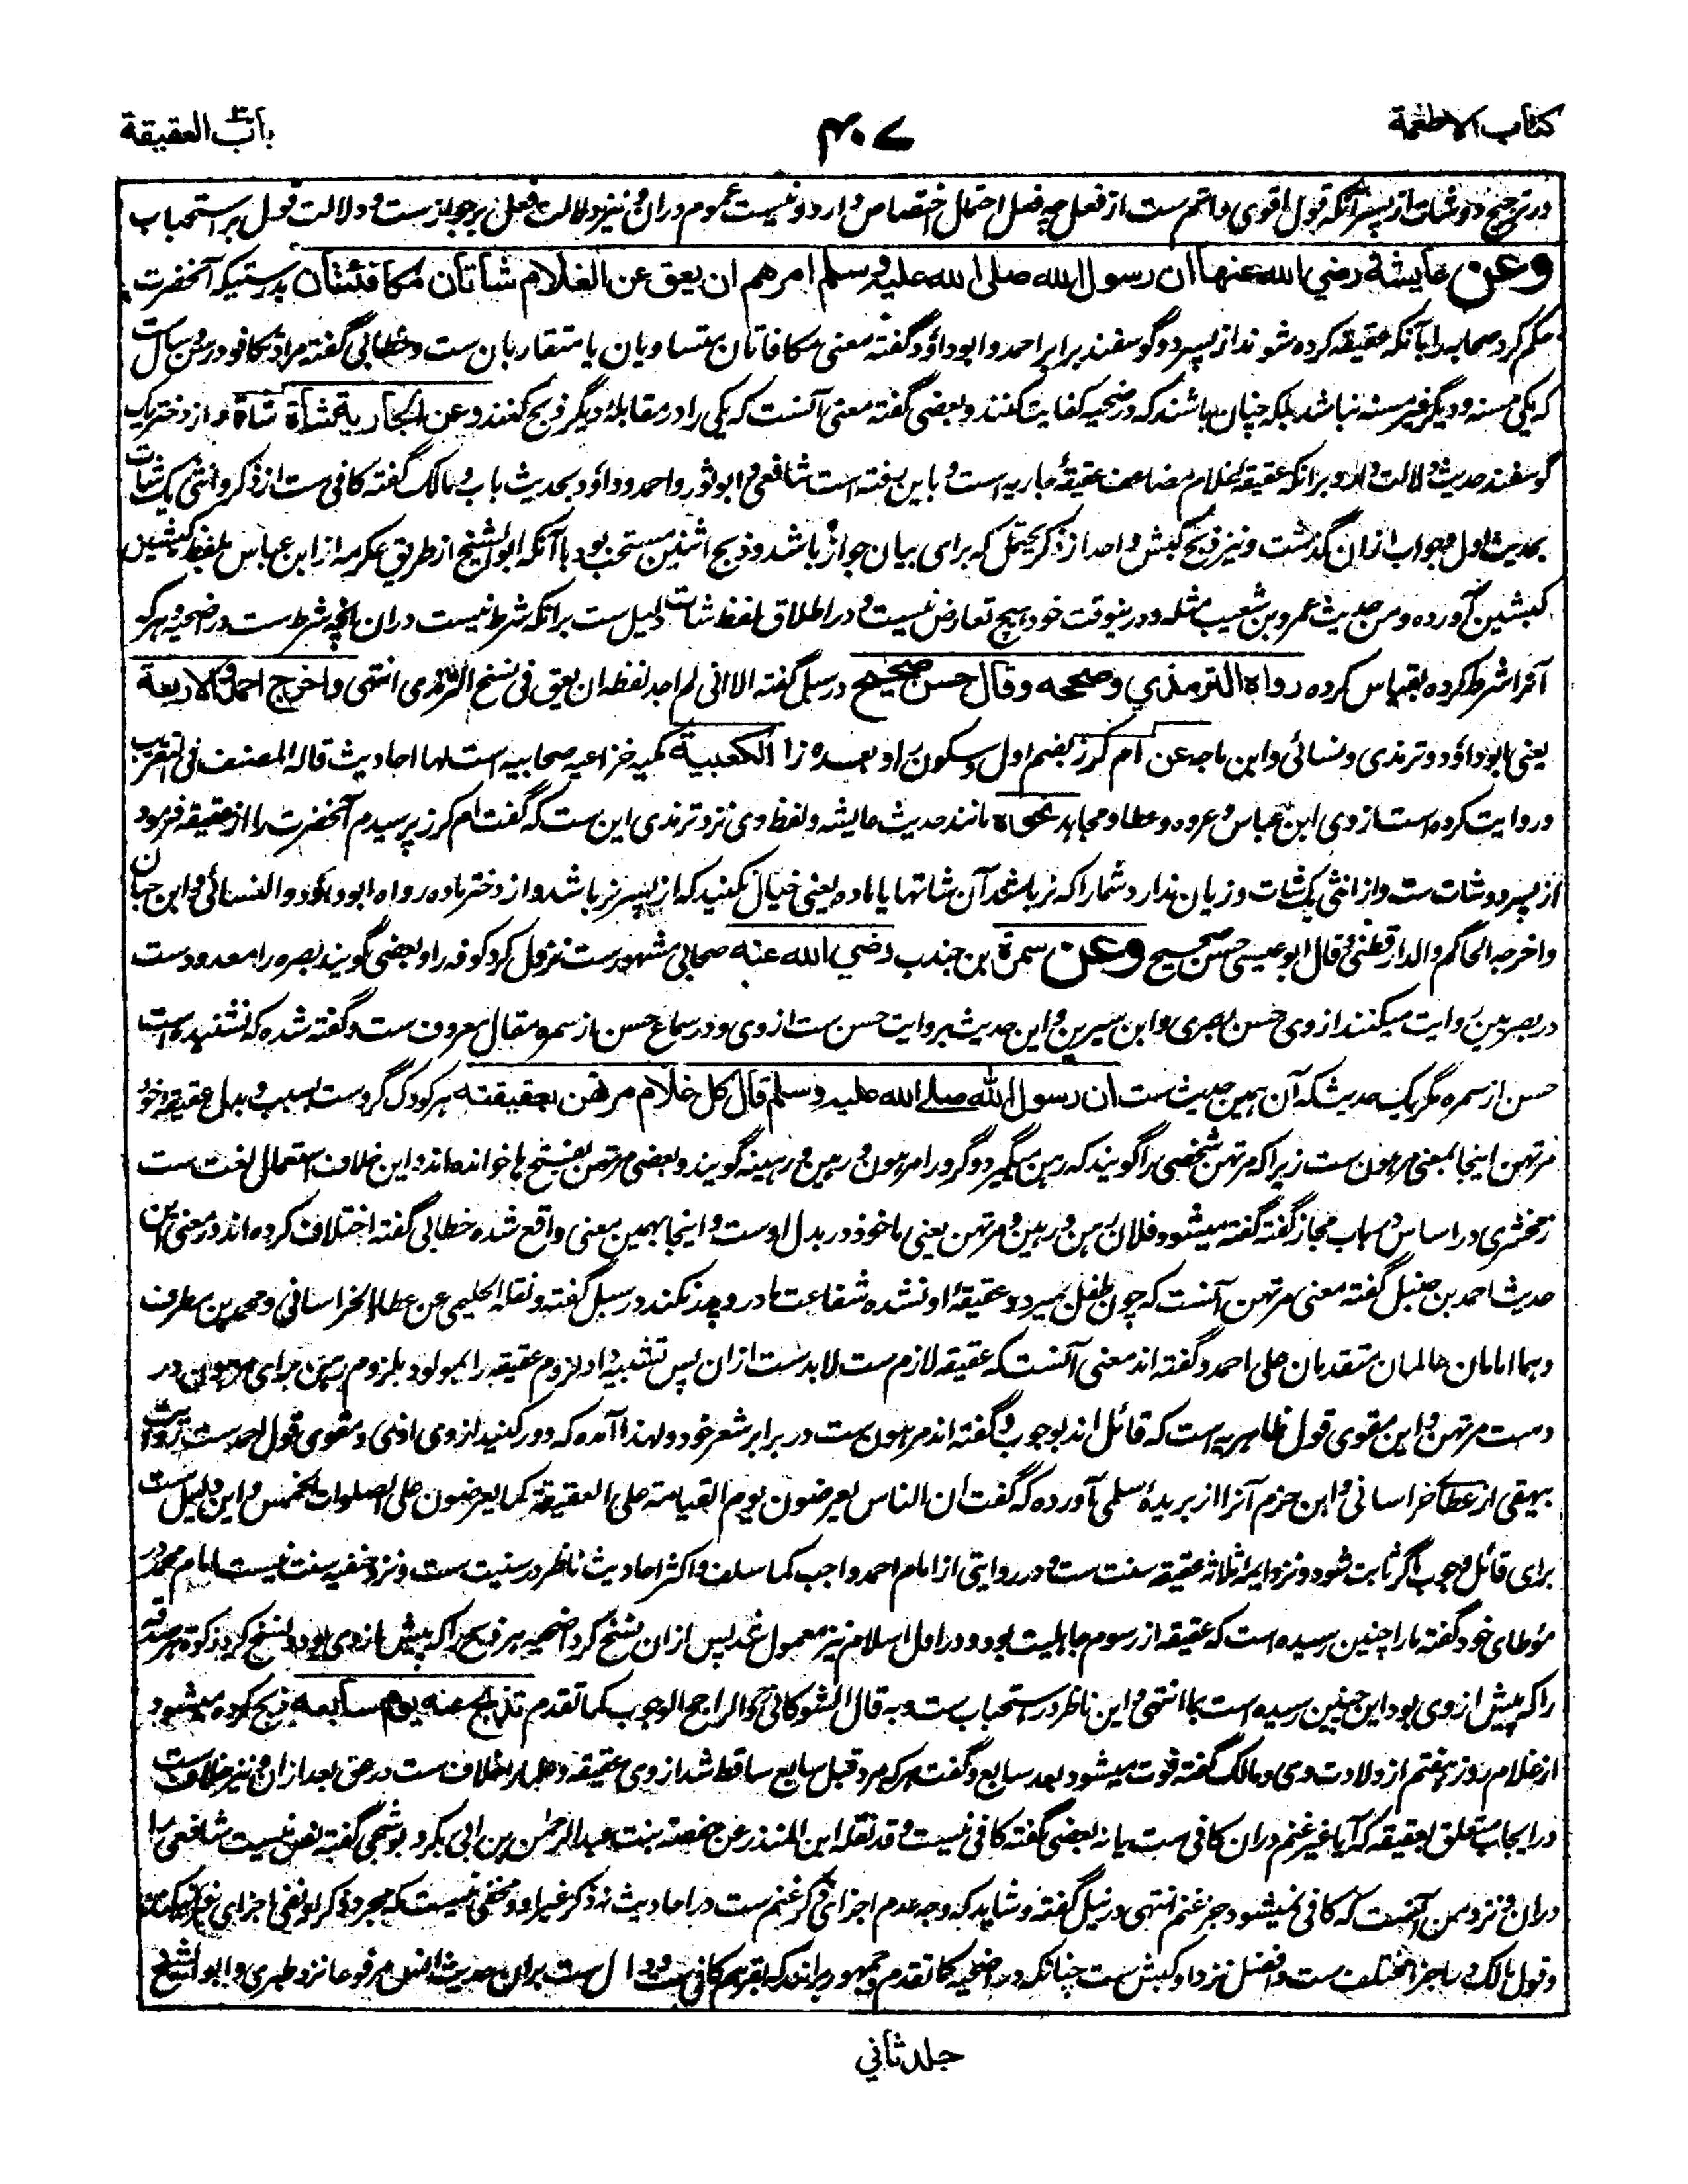 كتاب الاطعمة
۴۰۷
باب العقيقة
در ترجیح دو شات از پسر آنکه قول اقوی و اتم ست از فعل چه فعل احتمال اختصاص دارد و نیست عموم دران و نیز دلالت فعل بر جواز ست و دلالت قول بر استحباب
وعن عايشة رضي الله عنها ان رسول الله صلى الله عليه وسلم امرهم ان يعق عن الغلام شاتان مكافئتان بدرستیکه آنحضرت
حکم کرد صحابه را بآنکه عقیقه کرده شوند از پسر دو گوسفند برابر احمد و ابو داؤد گفته معنی مکافاتان متساویان یا متقاربان ست و خطابی گفته مراد تکافو در سن ست
که یکی مسنه و دیگر غیر مسنه نباشد بلکه چنان باشند که در ضحیه کفایت کنند و بعضی گفته معنی آنست که یکی را در مقابلهٔ دیگر ذبح کنند وعن الجارية شاة و از دختر یک
گوسفند حدیث دلالت دارد برانکه عقیقهٔ غلام مضاعف عقیقهٔ جاریه است و باین رفته است شافعی و ابو ثور و احمد و داؤد بحدیث باب و مالک گفته کافی ست از ذکر و انثی یک شات
بحدیث اول و جواب ازان گذشت و نیز ذبح کبش واحد از ذکر یحتمل که برای بیان جواز باشد و ذبح اثنین مستحب بود با آنکه ابو الشیخ از طریق عکرمه از ابن عباس بلفظ کبشین
کبشین آورده و من حدیث عمرو بن شعیب مثله و درینوقت خود هیچ تعارض نیست و در اطلاق لفظ شات دلیل ست برانکه شرط نیست دران آنچه شرط ست در ضحیه و هرکه
آنرا شرط کرده بقیاس کرده رواه الترمذي وصححه وقال حسن صحيح در سبل گفته الا انی لم اجد لفظه ان یعق فی نسخ الترمذی انتهی واخرج احمد والاربعة
یعنی ابو داؤد و ترمذی و نسائی و ابن ماجه عن ام كرز بضم اول و سکون را و بعده زا الكعبية کعبیه خزاعیه صحابیه است لها احادیث قاله المصنف فی التقریب
و روایت کرده است از وی ابن عباس و عروه و عطا و مجاهد نحوه مانند حدیث عایشه و لفظ وی نزد ترمذی این ست که گفت ام کرز پرسیدم آنحضرت را از عقیقه فرمود
از پسر دو شات ست و از انثی یک شات و زیان ندارد شما را که نر باشند آن شاتها یا ماده یعنی خیال نکنید که از پسر نر باشد و از دختر ماده رواه ابو داؤد والنسائی و ابن حبان
واخرجه الحاکم والدارقطنی و قال ابو عیسی حسن صحیح وعن سمرة بن جندب رضي الله عنه صحابی مشهورست نزول کرد کوفه را و بعضی گویند بصره را معدودست
در بصریین روایت میکنند از وی حسن بصری و ابن سیرین و این حدیث بروایت حسن ست از وی و در سماع حسن از سمره مقال معروف ست و گفته شده که نشنیده است
حسن از سمره مگر یک حدیث که آن همین حدیث ست ان رسول الله صلى الله عليه وسلم قال كل غلام مرتهن بعقيقته هر کودک گروست بسبب و بدل عقیقه خود
مرتهن اینجا بمعنی مرهون ست زیرا که مرتهن شخصی را گویند که رهن میگیرد و گرو را مرهون و رهین و رهینه گویند و بعضی مرتهن بفتح ها خوانده اند و این خلاف استعمال لغت ست
زمخشری در اساس در باب مجاز گفته گفته میشود فلان رهن و رهین و مرتهن یعنی ماخوذ در بدل اوست و اینجا بهمین معنی واقع شده خطابی گفته اختلاف کرده اند در معنی این
حدیث احمد بن حنبل گفته معنی مرتهن آنست که چون طفل بمیرد و عقیقهٔ او نشده شفاعت مادر و پدر نکند در سبل گفته و نقله الحلیمی عن عطاء الخراسانی و محمد بن مطرف
و هما امامان عالمان متقدمان علی احمد و گفته اند معنی آنست که عقیقه لازم ست لابدست ازان پس تشبیه داد لزوم عقیقه را بمولود بلزوم رهن برای مرهون در
دست مرتهن و این مقوی قول ظاهریه است که قائل اند بوجوب و گفته اند مرهون ست در برابر شعر خود و لهذا آمده که دور کنید از وی اذی و مقوی قول احمد ست روایت
بیهقی از عطاء خراسانی و ابن حزم آنرا از بریدهٔ اسلمی آورده که گفت ان الناس یعرضون یوم القیامة علی العقیقة کما یعرضون علی الصلوات الخمس و این دلیل ست
برای قائل وجوب اگر ثابت شود و نزد ایمهٔ ثلاثه عقیقه سنت ست و در روایتی از امام احمد واجب کما سلف و اکثر احادیث ناظر در سنیت ست و نزد حنفیه سنت نیست امام محمد در
مؤطای خود گفته ما را چنین رسیده است که عقیقه از رسوم جاهلیت بود و در اول اسلام نیز معمول شد پس ازان نسخ کرد اضحیه هر ذبح را که پیش از وی بود و نسخ کرد زکوة هر صدقه
را که پیش از وی بود این چنین رسیده است بما انتهی و این ناظر در استحباب ست و به قال الشوکانی و الراجح الوجوب کما تقدم تذبح عنه يوم سابعه ذبح کرده میشود
از غلام روز هفتم از ولادت وی و مالک گفته فوت میشود بعد سابع و گفته هرکه مرد قبل سابع ساقط شد از وی عقیقه و علما را خلاف ست در عق بعد ازان و نیز خلاف ست
در ایجاب متعلق بعقیقه که آیا غیر غنم دران کافی ست یا نه بعضی گفته کافی نیست و قد نقله ابن المنذر عن حفصة بنت عبد الرحمن بن ابی بکر و بوشنجی گفته نص نیست شافعی را
دران و نزد من آنست که کافی نمیشود جز غنم انتهی در نیل گفته و شاید که وجه عدم اجزا ذکر غنم ست در احادیث نه ذکر غیر او و مخفی نیست که مجرد ذکر او نفی اجزای غیر نمیکند
و قول مالک در اجزا مختلف ست و افضل نزد او کبش ست چنانکه در اضحیه کما تقدم و جمهور برانند که بقر هم کافی ست و دال ست بران حدیث انس مرفوعا نزد طبری و ابو الشیخ
جلد ثاني